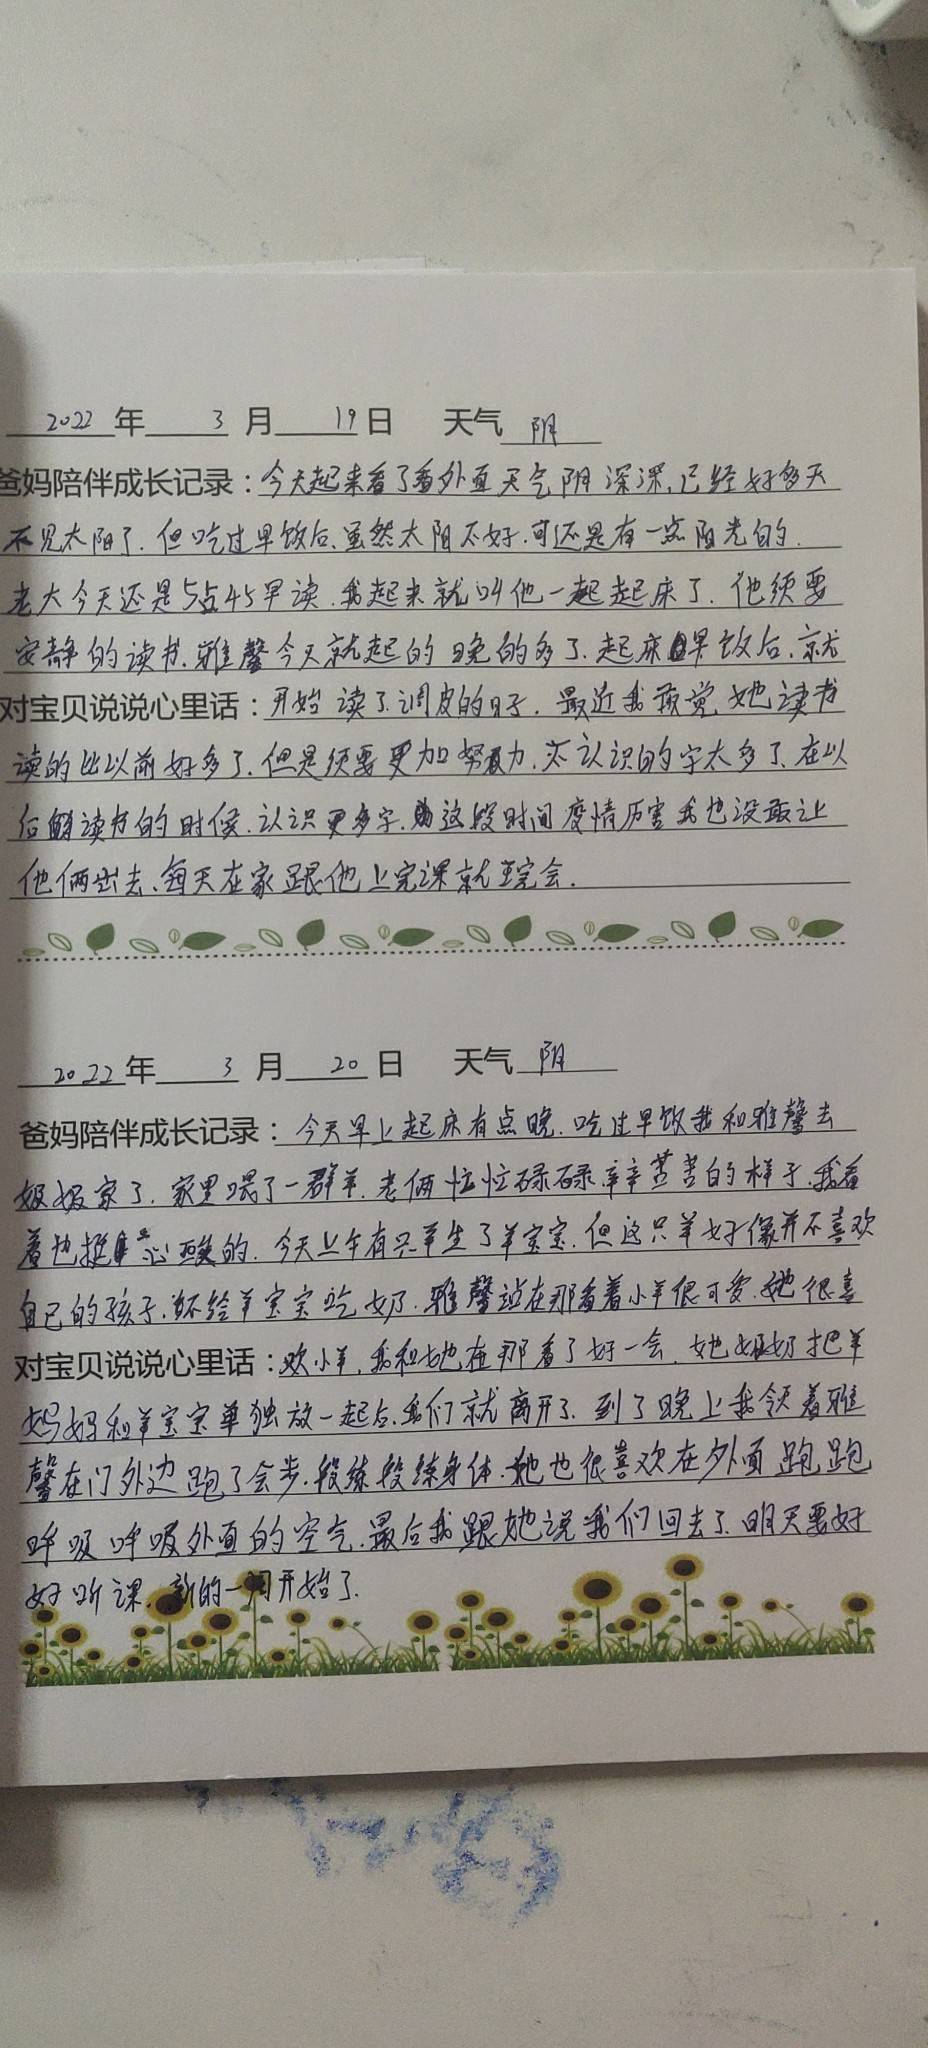 2022 年 3 月 19 日 天气 阴
爸妈陪伴成长记录：今天起来看了看外面天气阴深深，已经好多天
不见太阳了，但吃过早饭后，虽然太阳不好，可还是有一点阳光的，
老大今天还是5点45早读，我起来就叫他一起起床了，他须要
安静的读书，雅馨今天就起的晚的多了，起床早饭后，就
对宝贝说说心里话：开始读了调皮的日子，最近我感觉她读书
读的比以前好多了，但是须要更加努力，不认识的字太多了，在以
后的读书的时候，认识更多字，这段时间疫情厉害我也没敢让
他俩出去，每天在家跟他上完课就玩会．
2022 年 3 月 20 日 天气 阴
爸妈陪伴成长记录：今天早上起床有点晚，吃过早饭我和雅馨去
奶奶家了，家里喂了一群羊，老俩忙忙碌碌，辛辛苦苦的样子，我看
着也挺心酸的，今天上午有只羊生了羊宝宝，但这只羊好像并不喜欢
自已的孩子，不给羊宝宝吃奶，雅馨站在那看着小羊很可爱，她很喜
对宝贝说说心里话：欢小羊，我和她在那看了好一会，她奶奶把羊
妈妈和羊宝宝单独放一起后，我们就离开了，到了晚上我领着雅
馨在门外边跑了会步，锻练锻练身体，她也很喜欢在外面跑跑
呼吸呼吸外面的空气，最后我跟她说我们回去了，明天要好
好听课，新的一周开始了．